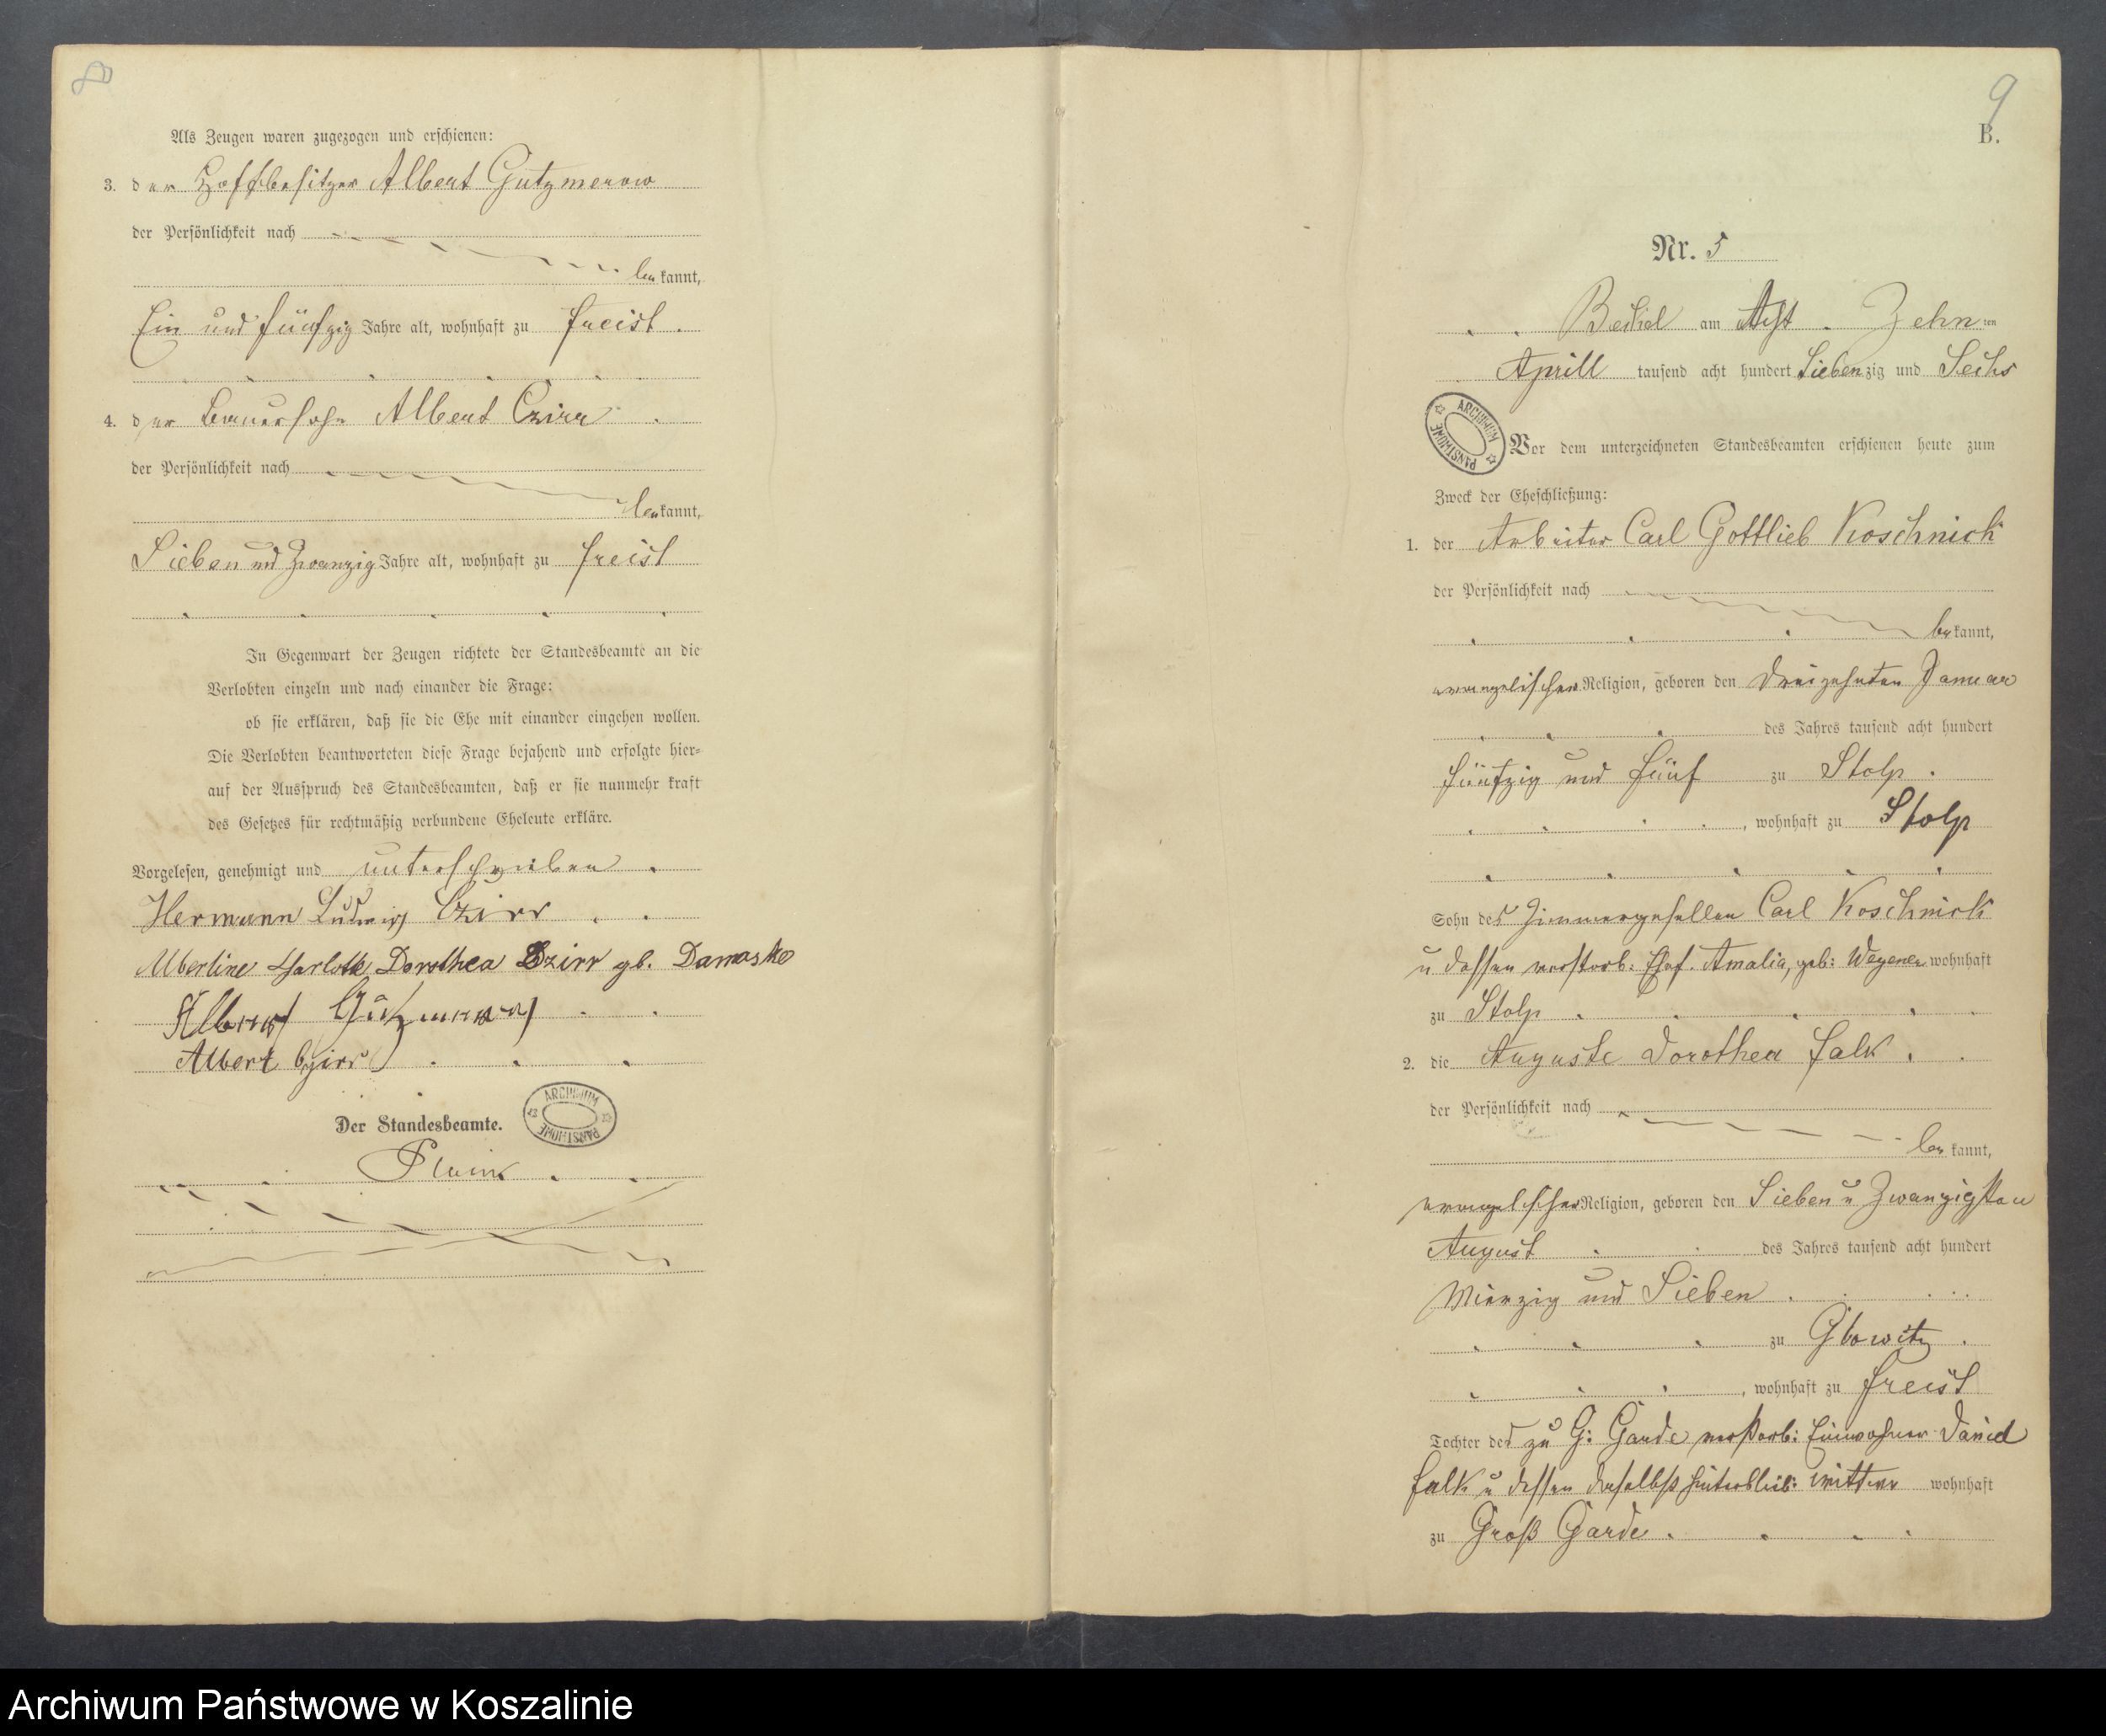 8
Als Zeugen waren zugezogen und erschienen:
3. der Hoffbesitzer Albert Gutzmerow
der Persönlichkeit nach
bekannt,
Ein und fünfzig Jahre alt, wohnhaft zu Freist.
4. der Bauersohn Albert Czirr
der Persönlichkeit nach
bekannt,
Sieben und Zwanzig Jahre alt, wohnhaft zu Freist
In Gegenwart der Zeugen richtete der Standesbeamte an die
Verlobten einzeln und nach einander die Frage:
ob sie erklären, daß sie die Ehe mit einander eingehen wollen.
Die Verlobten beantworteten diese Frage bejahend und erfolgte hier-
auf der Ausspruch des Standesbeamten, daß er sie nunmehr kraft
des Gesetzes für rechtmäßig verbundene Eheleute erkläre.
Vorgelesen, genehmigt und unterschrieben
Hermann Ludwig Czirr
Albertine Harlotte Dorothea Czirr gb. Damaske
Albert Gützmerow
Albert Czirr
Der Standesbeamte.
ARCHIWUM PAŃSTWOWE
9
B.
Nr. 5
am Acht Zehn ten
Aprill tausend acht hundert Siebenzig und Sechs
ARCHIWUM PAŃSTWOWE
Vor dem unterzeichneten Standesbeamten erschienen heute zum
Zweck der Eheschließung:
1. der Arbeiter Carl Gottlieb Koschnick
der Persönlichkeit nach
bekannt,
evangelischer Religion, geboren den Dreizehnten Januar
des Jahres tausend acht hundert
Fünfzig und Fünf zu Stolp.
, wohnhaft zu Stolp
Sohn des Zimmergesellen Carl Koschnick
u dessen verstorb: Ehef. Amalia, geb: Wegener wohnhaft
zu Stolp
2. die Auguste Dorothea Falk
der Persönlichkeit nach
bekannt,
evangelischer Religion, geboren den Sieben u Zwanzigsten
August des Jahres tausend acht hundert
Vierzig und Sieben
zu Glowitz
, wohnhaft zu Freist
Tochter des zu G: Garde verstorb: Einwohner Daniel
Falk u dessen daselbst hinterblieb: Wittwe wohnhaft
zu Groß Garde
Archiwum Państwowe w Koszalinie